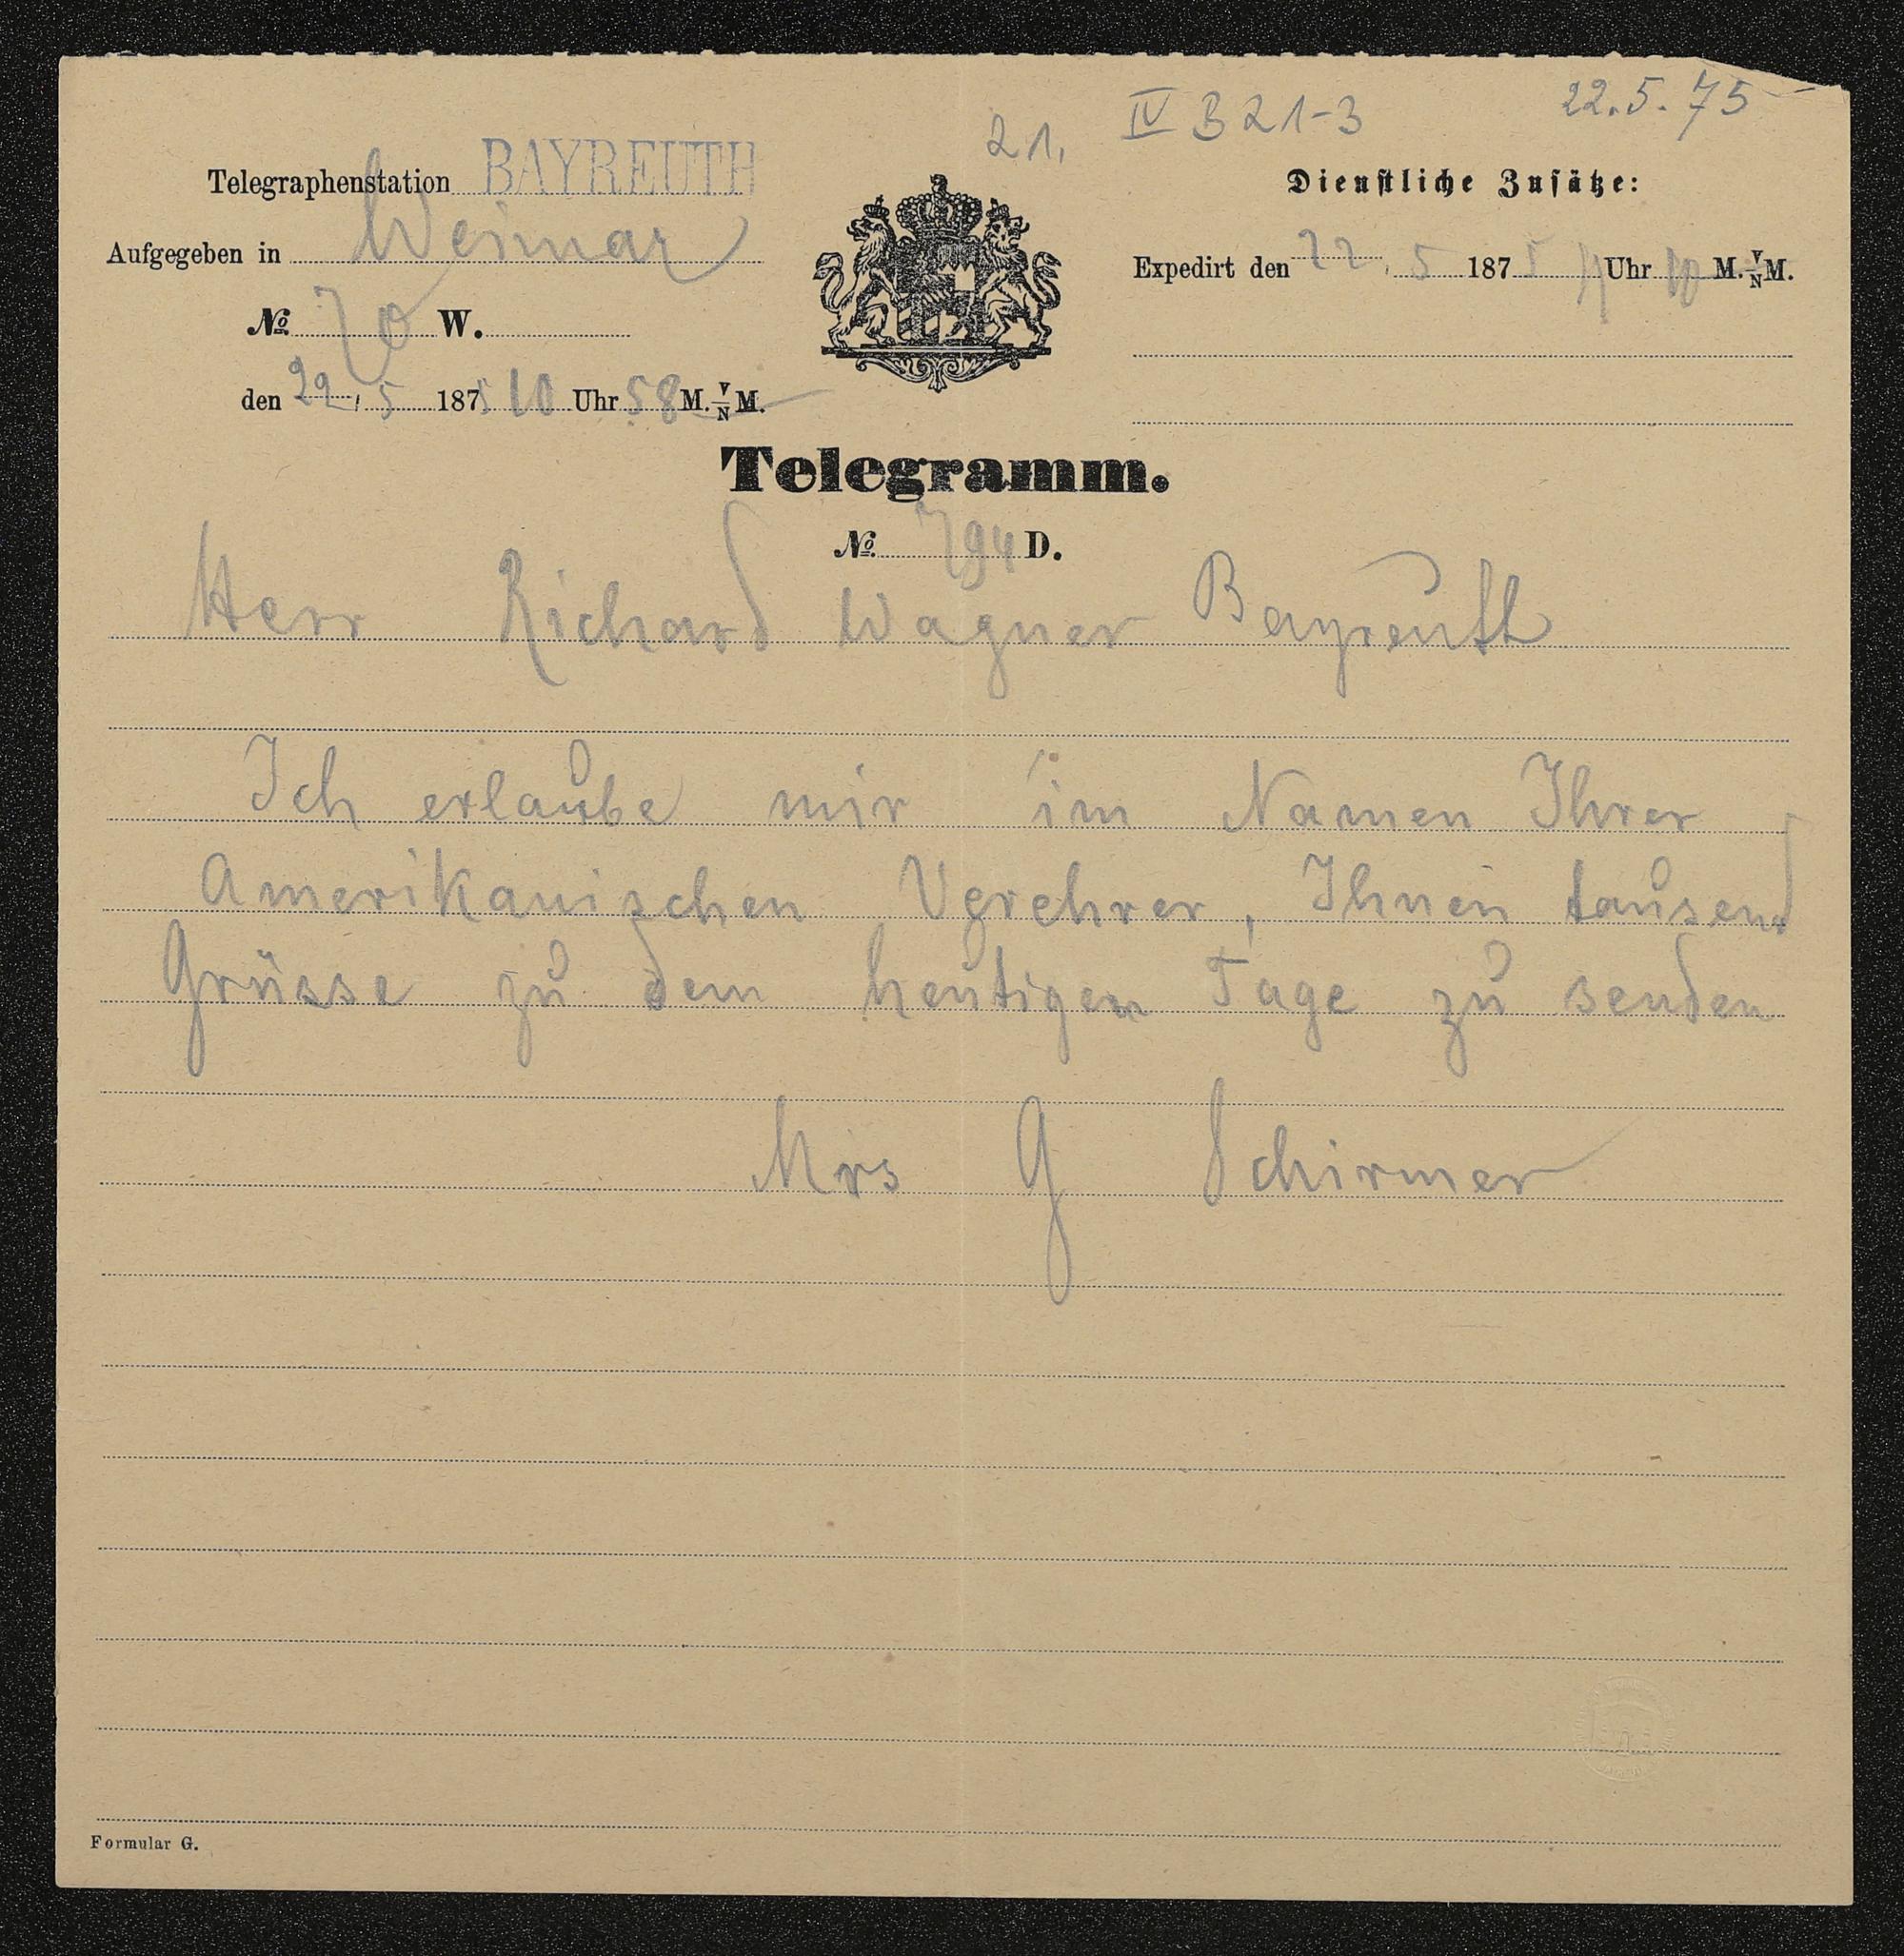 21. IV B 21-3 22.5.75
Telegraphenstation BAYREUTH
Aufgegeben in Weimar
No 70 W.
den 22/5 1875 10 Uhr 58 M. V/N M.
Dienstliche Zusätze:
Expedirt den 22. 5 1875 11 Uhr 10 M. V/N M.
Telegramm.
No 794 D.
Herr Richard Wagner Bayreuth
Ich erlaube mir im Namen Ihrer
Amerikanischen Verehrer, Ihnen tausend
Grüsse zu dem heutigen Tage zu senden
Mrs G Schirmer
Formular G.